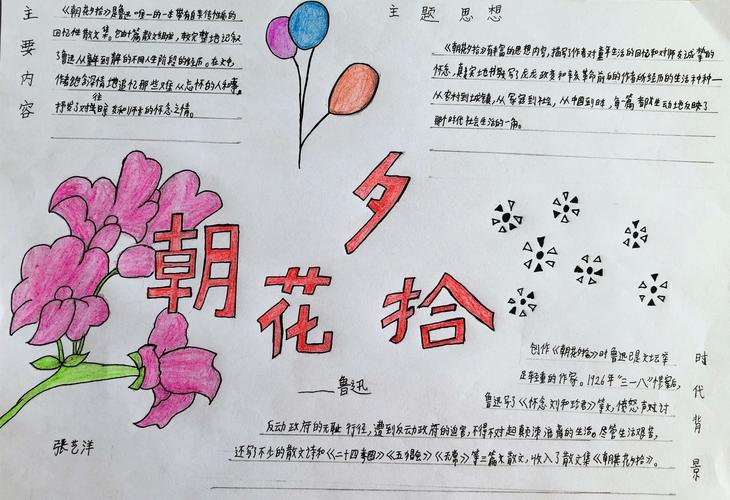 主要内容
《朝花夕拾》是鲁迅唯一的一本带有自传性质的
回忆性散文集。它由十篇散文组成，较完整地记叙
了鲁迅从
的不同人生阶段的经历。在文
作者饱含深情地追忆那些难以忘怀的人和事，
抒发了对
友和师长的怀念之情。
往
主题思想
《朝花夕拾》有丰富的思想内容，描写了作者对童年生活的回忆和对师友诚挚的
怀念，真实地书写了戊戌政变和辛亥革命前的作者所经历的生活种种一
从农村到城镇，从家庭到社会，从中国到日本，每一篇都生动地反映了
那个时代社会生活的一角。
朝花夕拾
——鲁迅
张艺洋
时代背景
创作《朝花夕拾》时鲁迅已是文坛举
足轻重的作家。1926年"三一八"惨案后，
鲁迅写了《怀念刘和珍君》等文，愤怒声讨
反动政府的无耻行径，遭到反动政府的迫害，不得不过起颠沛流离的生活。尽管生活艰苦，
还写了不少的散文诗和《二十四孝图》《五猖会》《无常》等三篇大散文，收入了散文集《朝花夕拾》。